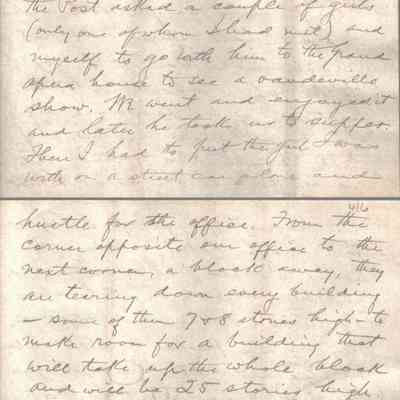 the Post asked a couple of girls
(only one of whom I had met) and
myself to go with him to the Grand
opera house to see a vaudeville
show. We went and enjoyed it
and later he took us to supper.
Then I had to put the girl I was
with on a street car alone and
4/6
hustle for the office. From the
corner opposite our office to the
next corner, a block away, they
are tearing down every building
— some of them 7 & 8 stories high - to
make room for a building that
will take up the whole block
and will be 25 stories high.